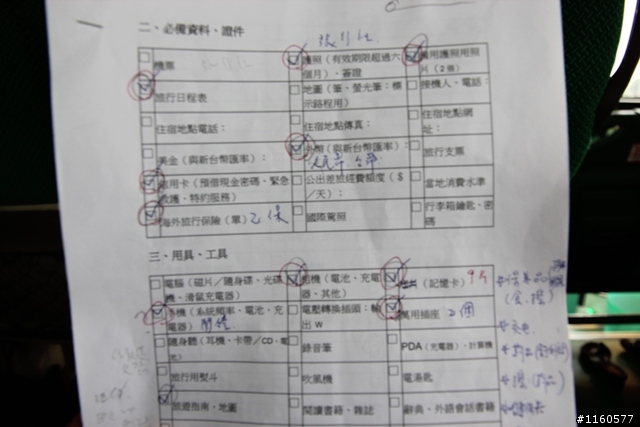 二、必備資料、證件
機票
護照（有效期限超過六個月）、簽證
備用護照用照片（2張）
旅行日程表
地圖（筆、螢光筆：標示路程用）
接機人、電話：
住宿地點電話：
住宿地點傳真：
住宿地點網址：
美金（與新台幣匯率）：
外幣（與新台幣匯率）：
人民幣 台幣
旅行支票
信用卡（預借現金密碼、緊急救護、特約服務）
公出差旅經費額度（$／天）：
當地消費水準
海外旅行保險（單）乙保
國際駕照
行李箱鑰匙、密碼
三、用具、工具
電腦（磁片／隨身碟、光碟機、滑鼠充電器）
相機（電池、充電器、其他）
（記憶卡）9片
手機（系統頻率、電池、充電器）
電壓轉換插頭：輸出 W
萬用插座 2個
隨身聽（耳機、卡帶／CD、電池）
錄音筆
PDA（充電器）、計算機
旅行用熨斗
吹風機
電湯匙
旅遊指南、地圖
閱讀書籍、雜誌
辭典、外語會話書籍
#1160577